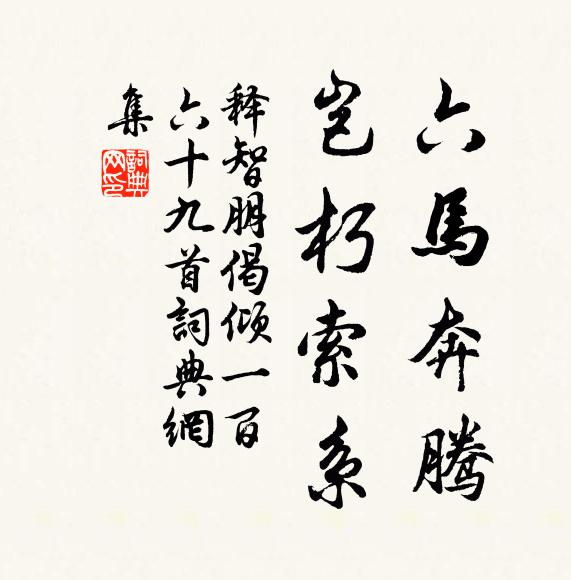 六馬奔騰
岂朽索系
释智朋偈倾一百
六十九首詞典網
集
詞典
网印